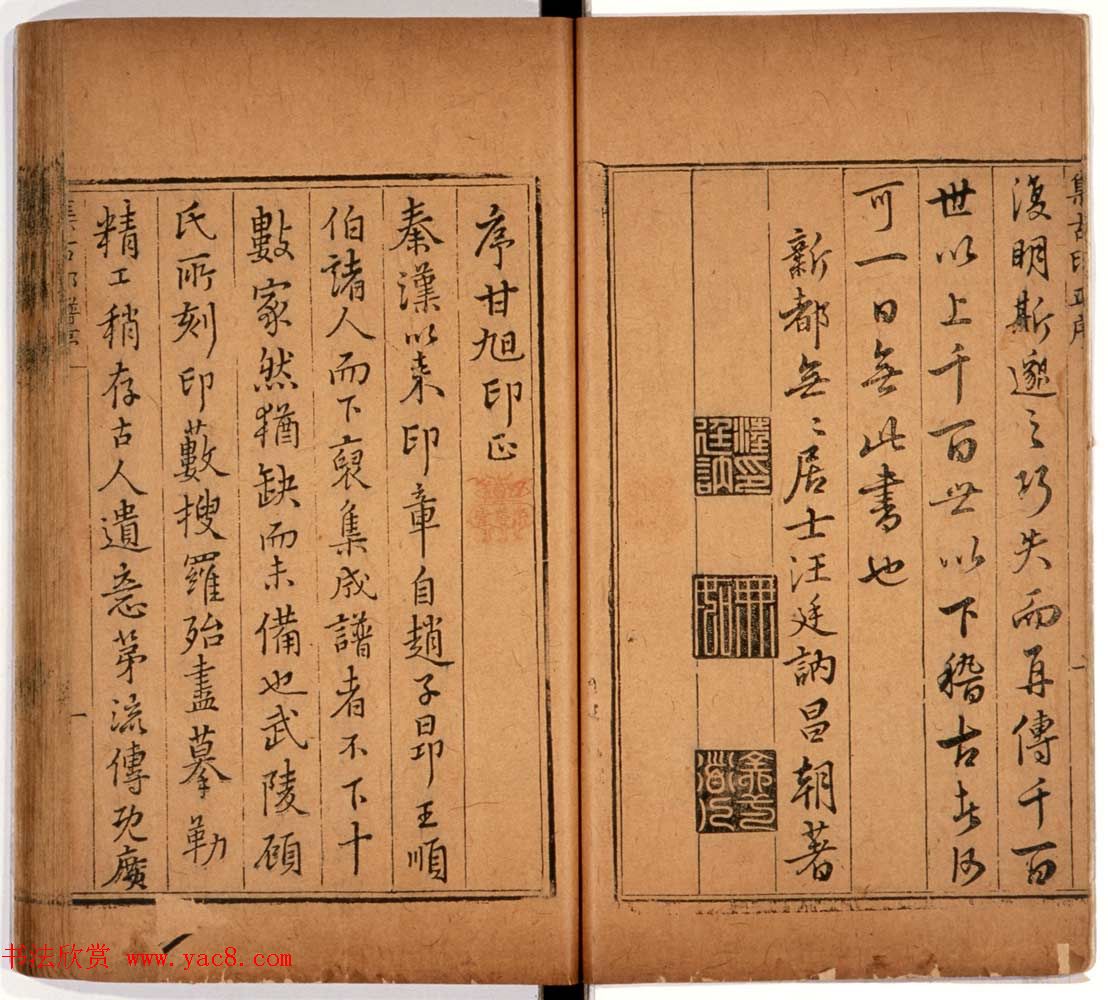 集古印正序
復明斯邈之巧失而再傳千百
世以上千百世以下稽古者何
可一日無此書也
新都無〻居士汪廷訥昌朝著
汪印廷訥
無如
序甘旭印正
秦漢以來印章自趙子昂王順
伯諸人而下裒集成譜者不下十
數家然猶缺而未備也武陵顧
氏所刻印藪搜羅殆盡摹勒
精工稍存古人遺意第流傳既廣
一
书法欣赏 www.yac8.com